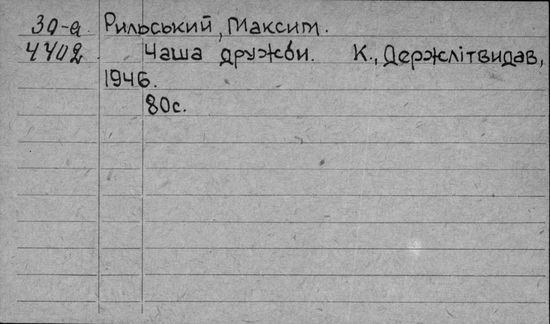 30-а Рильський, Максим.
4402 Чаша дружби. К., Держлітвидав,
1946.
80с.